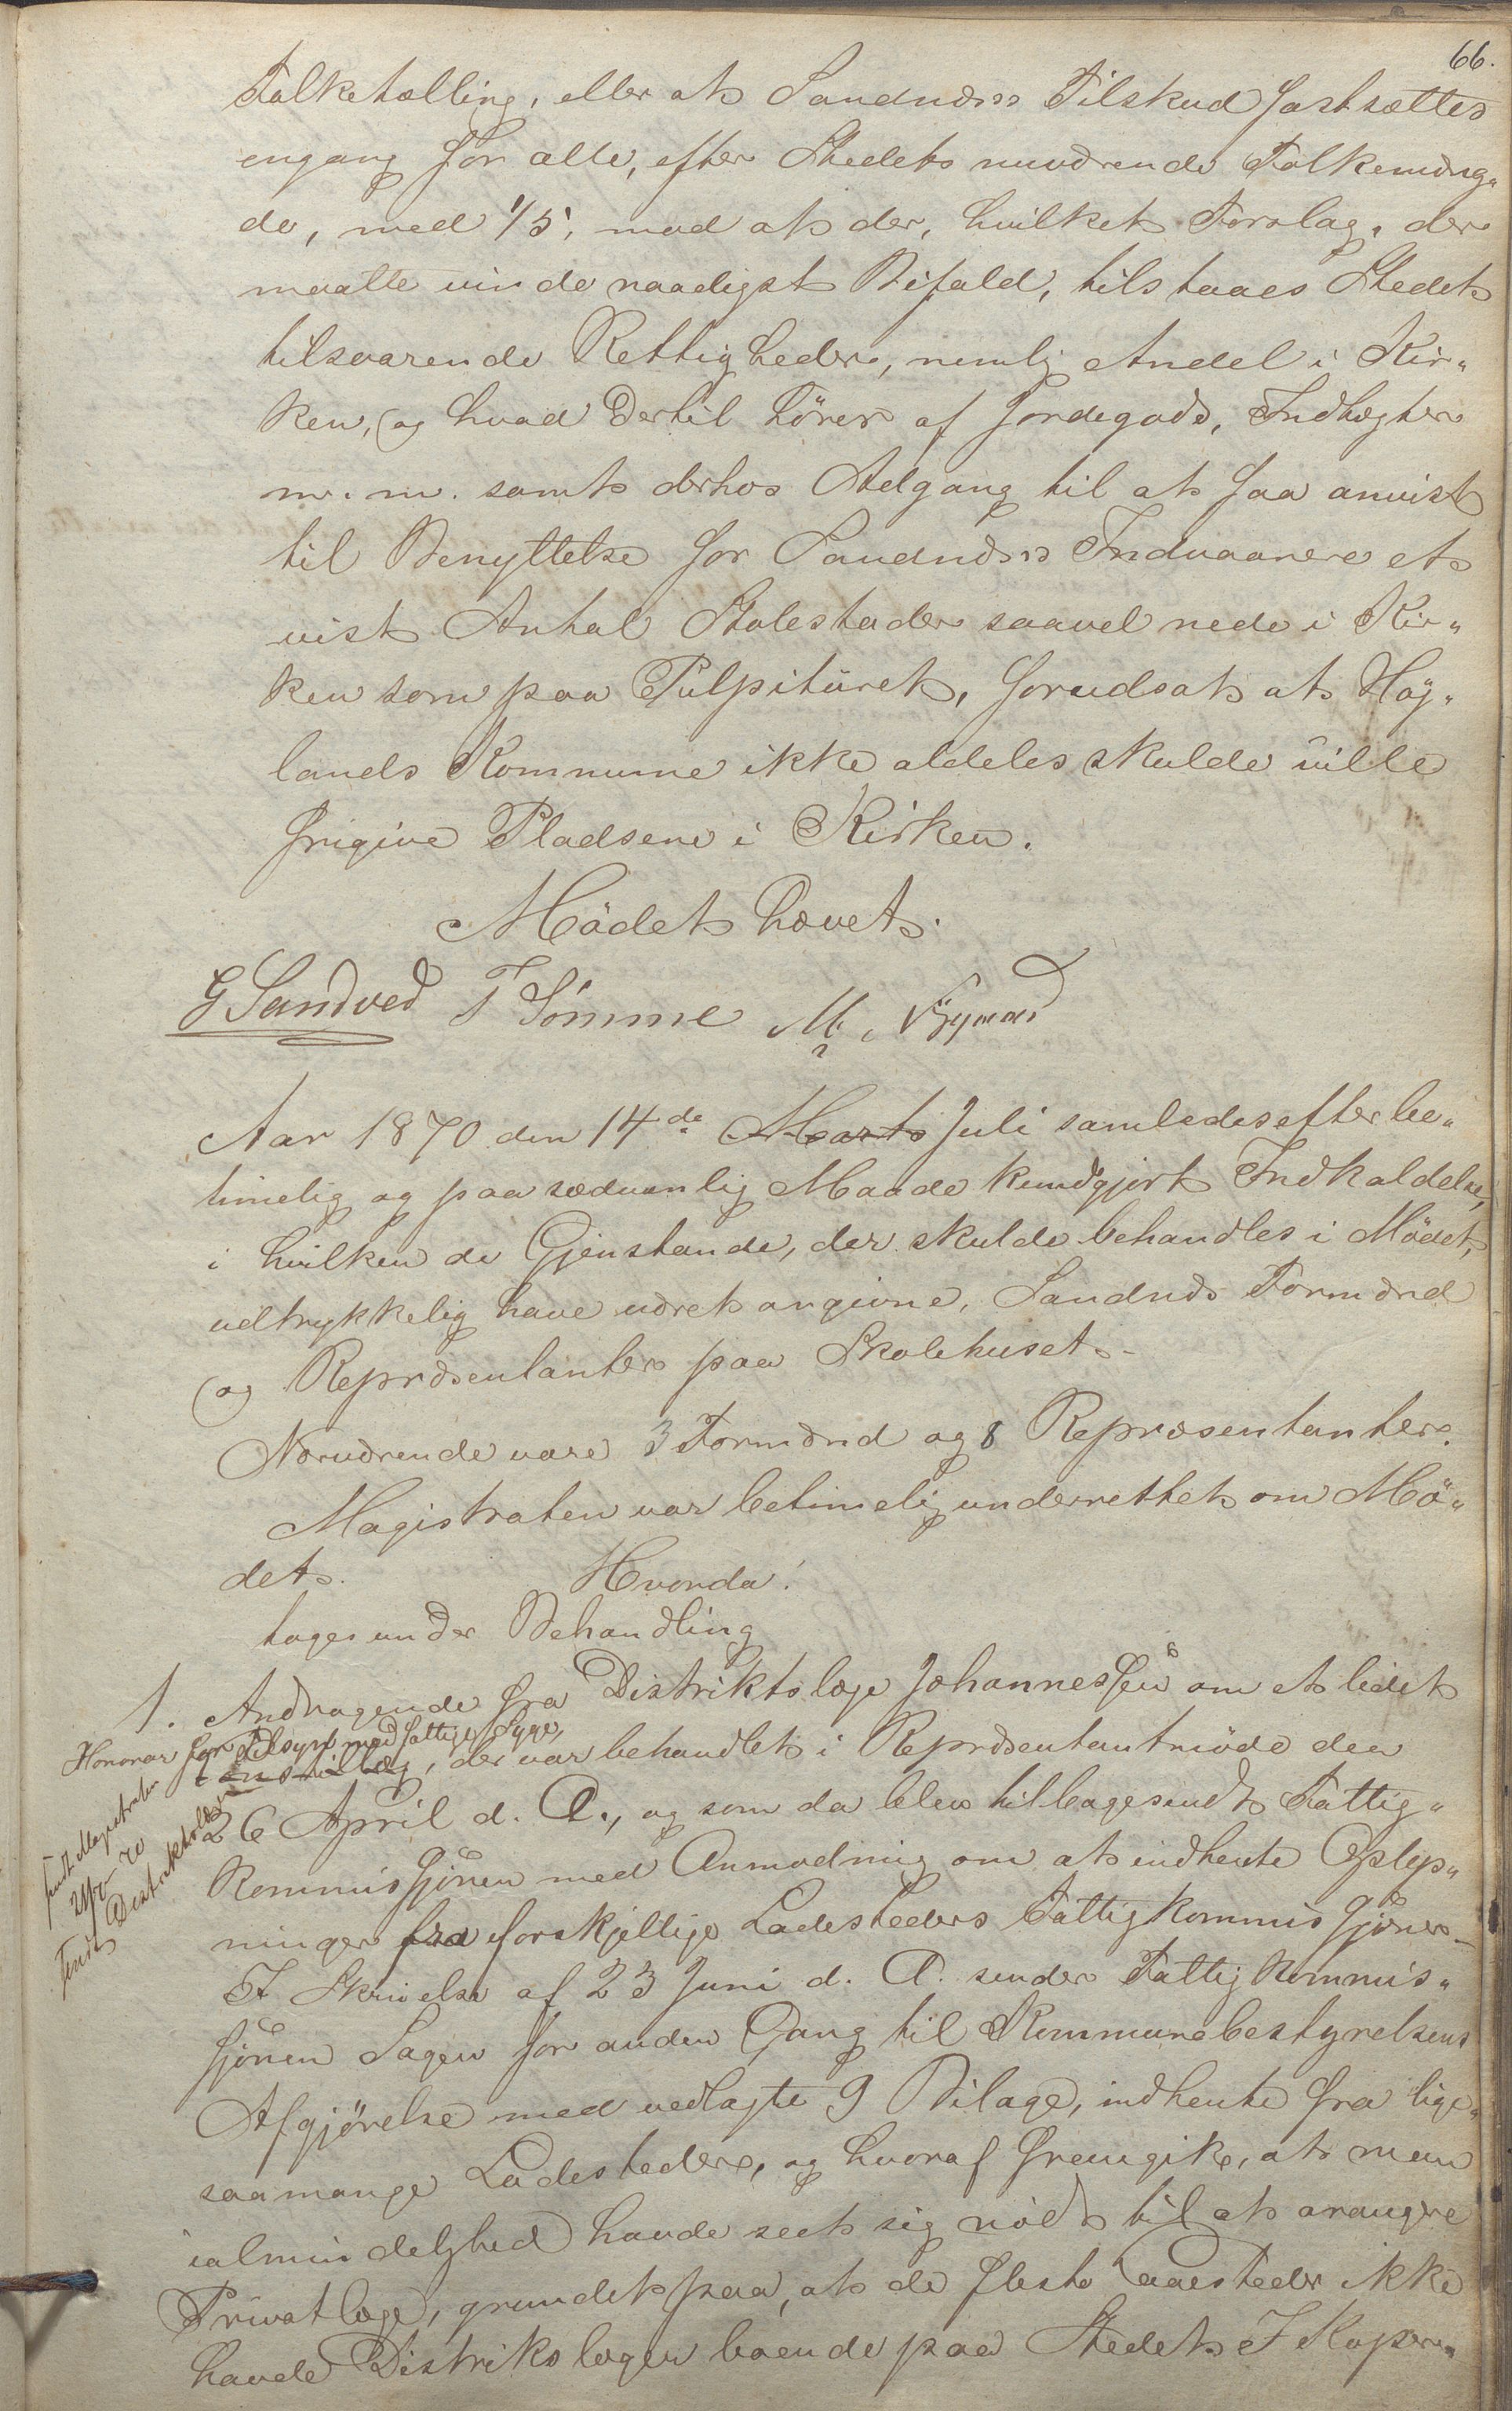 66.
Folketælling, eller at Sandnæss Tilskud fastsættes
engang for alle, efter Stedets nuværende Folkemæng„
de, med 1/5, mod at der, hvilket Forslag, der
maatte vinde naadigst Bifald, tilstaaes Stedet
tilsvarende Rettigheder, nemlig Andel i Kir„
ken, og hvad dertil hörer af Jordegods, Indtægter
m. m. samt derhos Adgang til at faa anvist
til Benyttelse for Sandnæss Indvaanere et
vist Antal Stolestader saavel nede i Kir„
ken som paa Pulpituret, forudsat at Höj„
lands Kommune ikke aldeles skulde ville
frigive Pladsene i Kirken.
Mödet hævet.
G Sandved T Sömme M.
Aar 1870 den 14de Marts Juli samledes efter be„
timelig og paa sædvanlig Maade kundgjort Indkaldelse,
i hvilken de Gjenstande, der skulde behandles i Mödet,
udtrykkelig have været angivne, Sandnæs Formænd
og Repræsentanter paa Skolehuset.
Nærværende vare 3 Formænd og 8 Repræsentanter.
Magistraten var betimelig underrettet om Mö„
det. Hvorda!
toges under Behandling
1. Andragende fra Distriktslæge Johannessen om et lidet
Honorar for Tilsyn med fattige Syge,
, der var behandlet i Repræsentantmöde den
26 April d. A., og som da blev tilbagesendt Fattig„
kommissjönen med Anmodning om at indhente Oplys„
ninger fra forskjellige Ladesteders Fattigkommissjöner.
I Skrivelse af 23 Juni d. A. sender Fattigkommis„
sjönen Sagen for anden Gang til Kommunebestyrelsens
Afgjörelse med vedlagte 9 Bilage, indhente fra lige„
saamange Ladesteder, og hvoraf fremgik, at man
ialmindelighed havde seet sig nödt til at arangere
Privatlæge, grundet paa, at de fleste Ladesteder ikke
havde Distrikslægen boende paa Stedet. I Koper„
sendt Magistraten
Sendt Distriktslægen